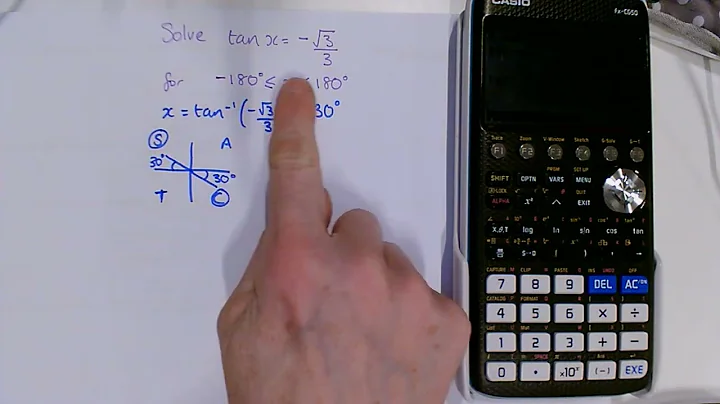 Solve tan x = -√3/3
for -180° ≤ ≤ 180°
x = tan⁻¹ (-√3/3 30°
S A
30° 30°
T C
CASIO
fx-CG50
Trace Zoom V-Window Sketch G-Solv G↔T
F1 F2 F3 F4 F5 F6
SHIFT OPTN VARS MENU
PRGM SET UP
ALPHA x² ^ EXIT
X,θ,T log ln sin cos tan
S↔D ( ) , →
CAPTURE CLIP PASTE INS UNDO OFF
7 8 9 DEL AC/ON
CATALOG FORMAT
4 5 6 × ÷
List Mat
1 2 3 + −
SPACE Ans
0 • ×10ˣ (−) EXE